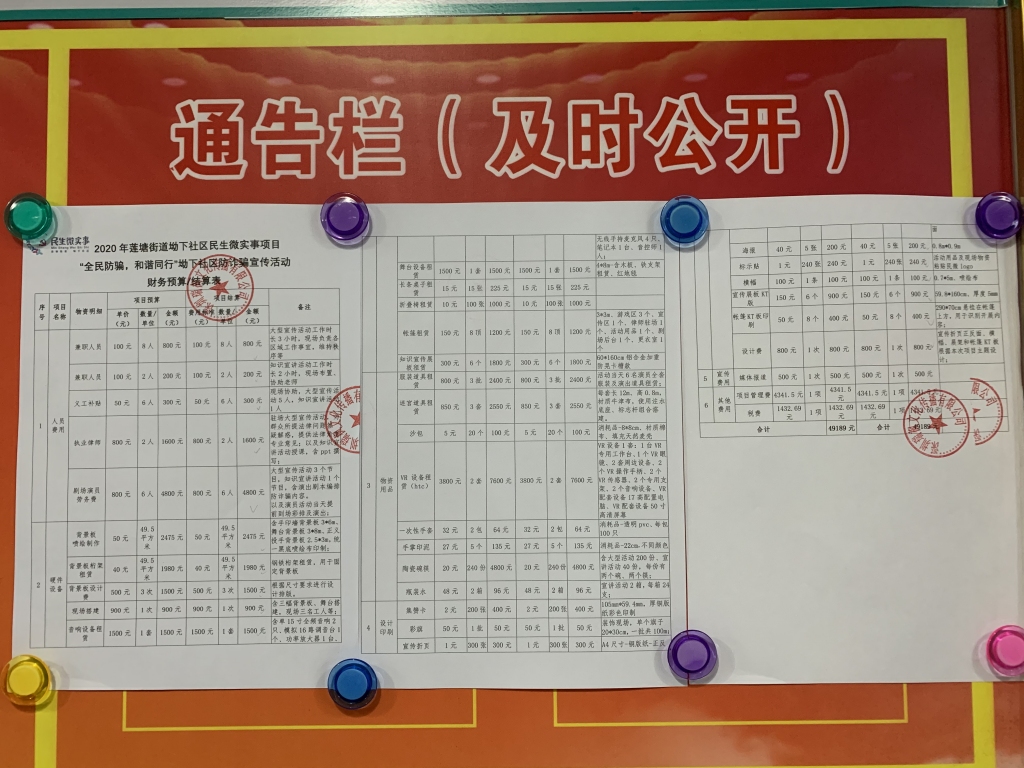 通告栏（及时公开）
民生微实事
2020年莲塘街道坳下社区民生微实事项目
“全民防骗，和谐同行”坳下社区防诈骗宣传活动
财务预算/结算表
序号 项目名称 物资明细 项目预算 项目结算 备注
单价（元） 数量/单位 金额（元） 数量/单位 金额（元）
1 人员费用
兼职人员 100元 8人 800元 100元 8人 800元 大型宣传活动工作时长3小时，现场负责各区域工作事宜，维持秩序等
兼职人员 100元 2人 200元 100元 2人 200元 知识宣讲活动工作时长2小时，现场布置、协助老师
义工补贴 50元 6人 300元 50元 6人 300元 现场协助，大型宣传活动5人，知识宣讲活动1人
执业律师 800元 2人 1600元 800元 2人 1600元
剧场演员劳务费 800元 6人 4800元 800元 6人 4800元 大型宣传活动3个节目，知识宣讲活动1个节目，含演出剧本编排防诈骗内容。以及演员活动当天提前到场彩排及演出；
2 硬件设备
背景板喷绘制作 50元 49.5平方米 2475元 50元 49.5平方米 2475元
背景板桁架租赁 40元 49.5平方米 1980元 40元 49.5平方米 1980元 钢铁桁架租赁，用于固定背景板
背景板设计费 500元 3次 1500元 500元 3次 1500元 根据尺寸要求进行设计排版。
现场搭建 900元 1次 900元 900元 1次 900元 含三幅背景板、舞台搭建，现场三名工人等；
音响设备租赁 1500元 1套 1500元 1500元 1套 1500元 含单15寸全频音响2只、模拟16路调音台1个、功率放大器1台、
无线手持麦克风4只、笔记本1台、音控师1人；
舞台设备租赁 1500元 1套 1500元 1500元 1套 1500元 4*8m-含木板、铁支架租赁、红地毯
长条桌子租赁 15元 15张 225元 15元 15张 225元
折叠椅租赁 10元 100张 1000元 10元 100张 1000元
帐篷租赁 150元 8顶 1200元 150元 8顶 1200元 3*3m、游戏区3个、宣传区1个、律师驻场1个、活动用品1个、剧场后台1个、更衣室1个
知识宣传展板租赁 300元 6个 1800元 300元 6个 1800元
3 物资用品
服装道具租赁 800元 3批 2400元 800元 3批 2400元 活动当天6名演员全套服装及演出道具租赁；
迷宫道具租赁 850元 3套 2550元 850元 3套 2550元 每套长12m、高0.8m，材质牛津布，使用注水底座、标志杆组合搭建。
沙包 5元 20个 100元 5元 20个 100元 消耗品-8*8cm、材质棉布、填充天然麦壳
VR设备租赁（htc） 3800元 2套 7600元 3800元 2套 7600元 VR设备1套：1台VR专用工作台、1个VR眼镜、2套周边设备、2个VR操作手柄、2个VR传感器、2个专用支架、2个音响设备、VR配套设备17英配置电脑、VR配套设备50寸高清屏幕
一次性手套 32元 2包 64元 32元 2包 64元 消耗品-透明pvc、每包100只
手掌印泥 27元 5个 135元 27元 5个 135元 消耗品-22cm、不同颜色
陶瓷碗筷 20元 240份 4800元 20元 240份 4800元 含大型活动200份、宣讲活动40份，每份有两个碗、两个筷；
瓶装水 48元 2箱 96元 48元 2箱 96元
4 设计印刷
集赞卡 2元 200张 400元 2元 200张 400元 100mm*59.4mm、厚铜版纸彩色印制
彩旗 50元 1批 50元 50元 1批 50元 装饰现场，单个旗子20*30cm，一批共100m；
宣传折页 1元 300张 300元 1元 300张 300元 A4尺寸-铜版纸-正反
面
海报 40元 5张 200元 40元 5张 200元 0.8m*0.9m
标示贴 1元 240张 240元 1元 240张 240元 活动用品及现场物资粘贴民微logo
横幅 100元 1条 100元 100元 1条 100元 喷绘布
宣传展板KT版 150元 6个 900元 150元 6个 900元 59.8*160cm、厚度5mm
帐篷KT板印刷 50元 8个 400元 50元 8个 400元 290*70cm悬挂在帐篷上方，用于识别开展内容；
设计费 800元 1次 800元 800元 1次 800元 宣传折页正反面、横幅、展架和帐篷KT板根据本次项目主题设计；
5 宣传费用 媒体报道 500元 1次 500元 500元 1次 500元
6 其他费用
项目管理费 4341.5元 1项 4341.5元 4341.5元 1项
税费 1432.69元 1项 1432.69元 1432.69元 1项
合计 49189元